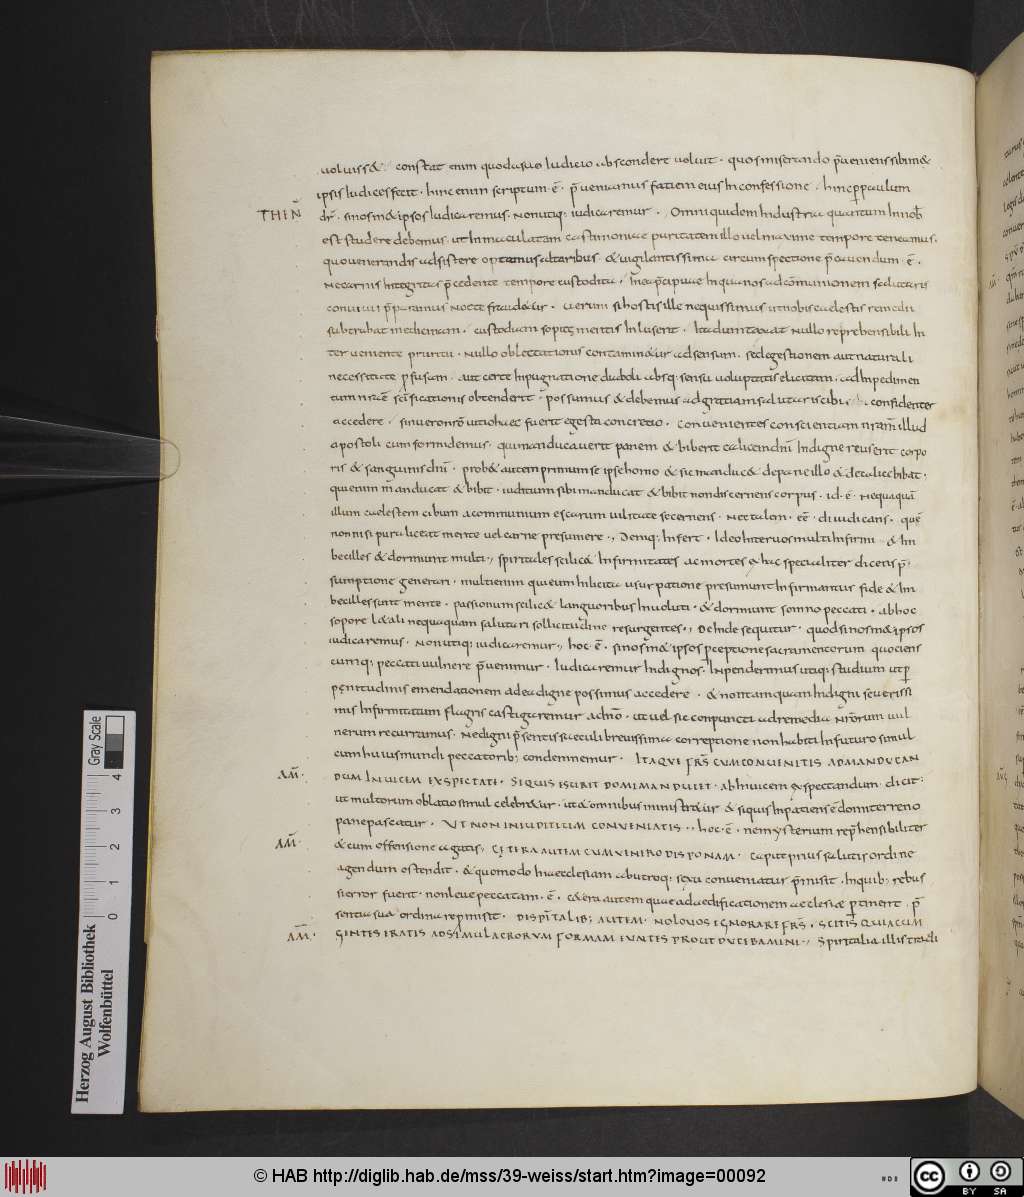 voluisset. constat enim quod suo iudicio abscondere voluit. quos miserando p̄veniens sibimet
ipsis iudices fecit. hinc enim scriptum ē. p̄veniamus faciem eius In confessione. hinc p̄ paulum
THIEN̄
dr̄. si nosmet ipsos iudicaremus. non utiq; iudicaremur. Omni quidem Industria quantum In nob̄
est studere debemus. ut Inmaculatam castimoniae puritatem illo vel maxime tempore teneamus.
quo venerandis adsistere optamus altaribus. & vigilantissima circumspectione p̄cavendum. ē.
Ne carnis Integritas p̄cedente tempore custodita. In ea p̄cipue In qua nos ad cōmunionem salutaris
convivii p̄paramus Nocte fraudetur. verum si hostis ille nequissimus ut nobis caelestis remedii
subtrahat medicinam. custodiam sopitę mentis Inluserit. Ita dumtaxat Nullo reprehensibili In
terveniente pruritu. Nullo oblectationis contaminetur adsensum. sed egestionem aut naturali
necessitate p̄fusam. aut certe Inpugnatione diaboli absq; sensu voluptatis elicitam. ad Inpedimen
tum nr̄ae sc̄ificationis obtenderit. possumus & debemus ad gratiam salutaris cibi. confidenter
accedere. sin vero nr̄o vitio haec fuerit egesta concretio. Convenientes conscientiam nr̄am illud
apostoli cum formidemus. qui manducaverit panem & biberit calicem dn̄i Indigne reus erit corpo
ris & sanguinis dn̄i. probet autem primum se ipse homo & sic manducet & de pane illo & de calice bibat.
qui enim manducat & bibit. iudicium sibi manducat & bibit non discernens corpus. id. ē. Nequaquā
illum caelestem cibum a communium escarum vilitate secernens. Nec talem. eē. diiudicans. quē
non nisi pura liceat mente vel carne presumere., Deniq; Infert. Ideo Inter vos multi Infirmi & In
becilles & dormiunt multi., spiritales scilicet Infirmitates ac mortes ex hac specialiter dicens p̄
sumptione generari. multi enim qui eum Inlicita usurpatione presumunt Infirmantur fide & In
becilles sunt mente. passionum scilicet languoribus Involuti. & dormiunt somno peccati. ab hoc
sopore letali nequaquam salutari sollicitudine resurgentes., DeInde sequitur. quod si nosmet ipsos
iudicaremus. Non utiq; iudicaremur., hoc ē. si nosmet ipsos p̄ceptione sacramentorum quociens
cumq; peccati vulnere p̄venimur. Iudicaremur Indignos. Inpenderimus utiq; studium ut p̄
pęnitudinis emendationem ad ea digne possimus accedere. & non tamquam Indigni severissi
mis Infirmitatum flagris castigaremur a dn̄o. ut vel sic conpuncti ad remedia Nr̄orum vul
nerum recurramus. Ne digni p̄sentis saeculi brevissima correptione non habiti In futuro simul
cum huius mundi peccatorib; condemnemur. ITAQUE FR̄S CUM CONVENITIS AD MANDUCAN
AM̄.
DUM INVICEM EXSPECTATE. SI QUIS ESURIT DOMI MANDUCET. ab Invicem exspectandum. dicit.
ut multorum oblatio simul celebretur. ut & omnibus ministretur & si quis Inpatiens ē domi terreno
pane pascatur. UT NON IN IUDITIUM CONVENIATIS., hoc. ē. ne mysterium rep̄hensibiliter
AM̄.
& cum offensione agatis. CĘTERA AUTEM CUM VENERO DISPONAM. Capite prius salutis ordine
agendum ostendit. & quomodo In aecclesiam ab utroq; sexu conveniatur p̄misit. In quib; rebus
si error fuerit. non leve peccatum. ē. cetera autem quae ad aedificationem aecclesiae p̄tinent. p̄
sentia sua ordinare p̄misit. DE SPIR̄TALIB; AUTEM. NOLO VOS IGNORARE FR̄S. SCITIS QUIA CUM
AM̄.
GENTES ERATIS AD SIMULACRORUM FORMAM EUNTES PROUT DUCEBAMINI., Spiritalia illis tradi
Herzog August Bibliothek
Wolfenbüttel
Gray Scale
0 1 2 3 4
© HAB http://diglib.hab.de/mss/39-weiss/start.htm?image=00092
cc BY SA